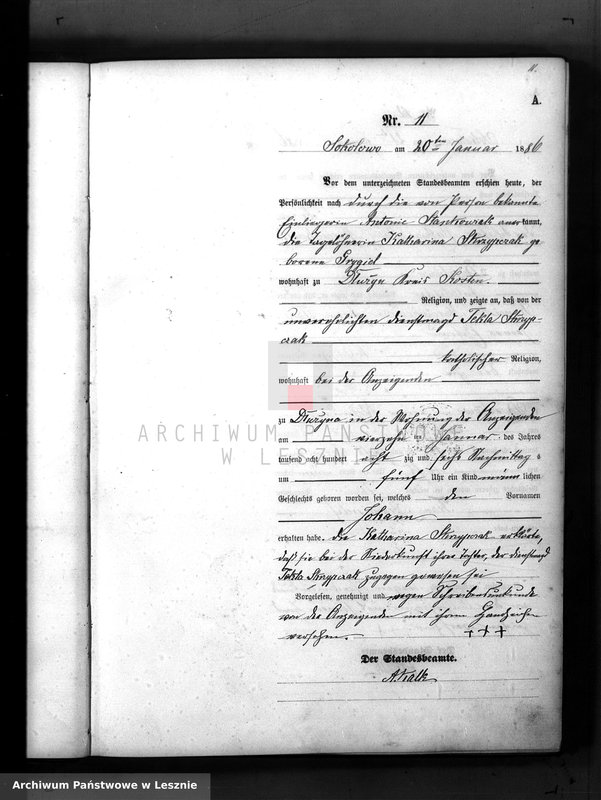 11.
A.
Nr. 11
Sokolowo am 20ten Januar 1886
Vor dem unterzeichneten Standesbeamten erschien heute, der
Persönlichkeit nach durch die von Person bekannte
Einliegerin Antonie Stankowiak anerkannt,
die Tagelöhnerin Katharina Skrzypczak ge
borene Grygiel
wohnhaft zu Kreis Kosten
Religion, und zeigte an, daß von der
unverehelichten Dienstmagd Tekla Skrzyp-
czak
katholischer Religion,
wohnhaft bei der Anzeigenden
zu in der Wohnung der Anzeigenden
am vierzehn ten Januar des Jahres
tausend acht hundert acht zig und sechs Nachmittags
um fünf Uhr ein Kind männ lichen
Geschlechts geboren worden sei, welches den Vornamen
Johann
erhalten habe. Die Katharina Skrzypczak erklärte,
daß sie bei der Niederkunft ihrer Tochter, der Dienstmagd
Tekla Skrzypczak zugegen gewesen sei
Vorgelesen, genehmigt und wegen Schreibensunkunde
von der Anzeigenden mit ihrem Handzeichen
versehen. +++
Der Standesbeamte.
ARCHIWUM PAŃSTWOWE
W LESZNIE
Archiwum Państwowe w Lesznie